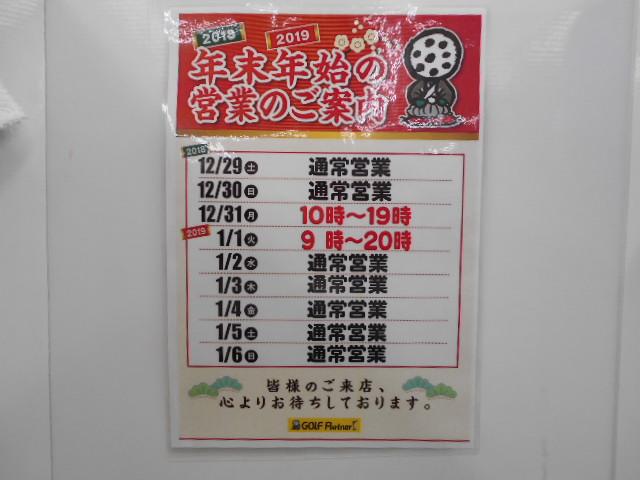 2018 2019
年末年始の
営業のご案内
2018
12/29 土 通常営業
12/30 日 通常営業
12/31 月 10時～19時
2019
1/1 火 9時～20時
1/2 水 通常営業
1/3 木 通常営業
1/4 金 通常営業
1/5 土 通常営業
1/6 日 通常営業
皆様のご来店、
心よりお待ちしております。
GOLF Partner